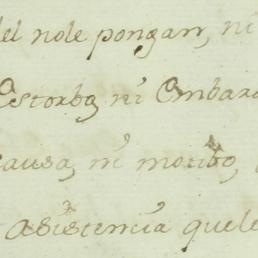 del nole pongan, ni
estorbo, ni Embara
causa, ni motibo,
asistencia quele